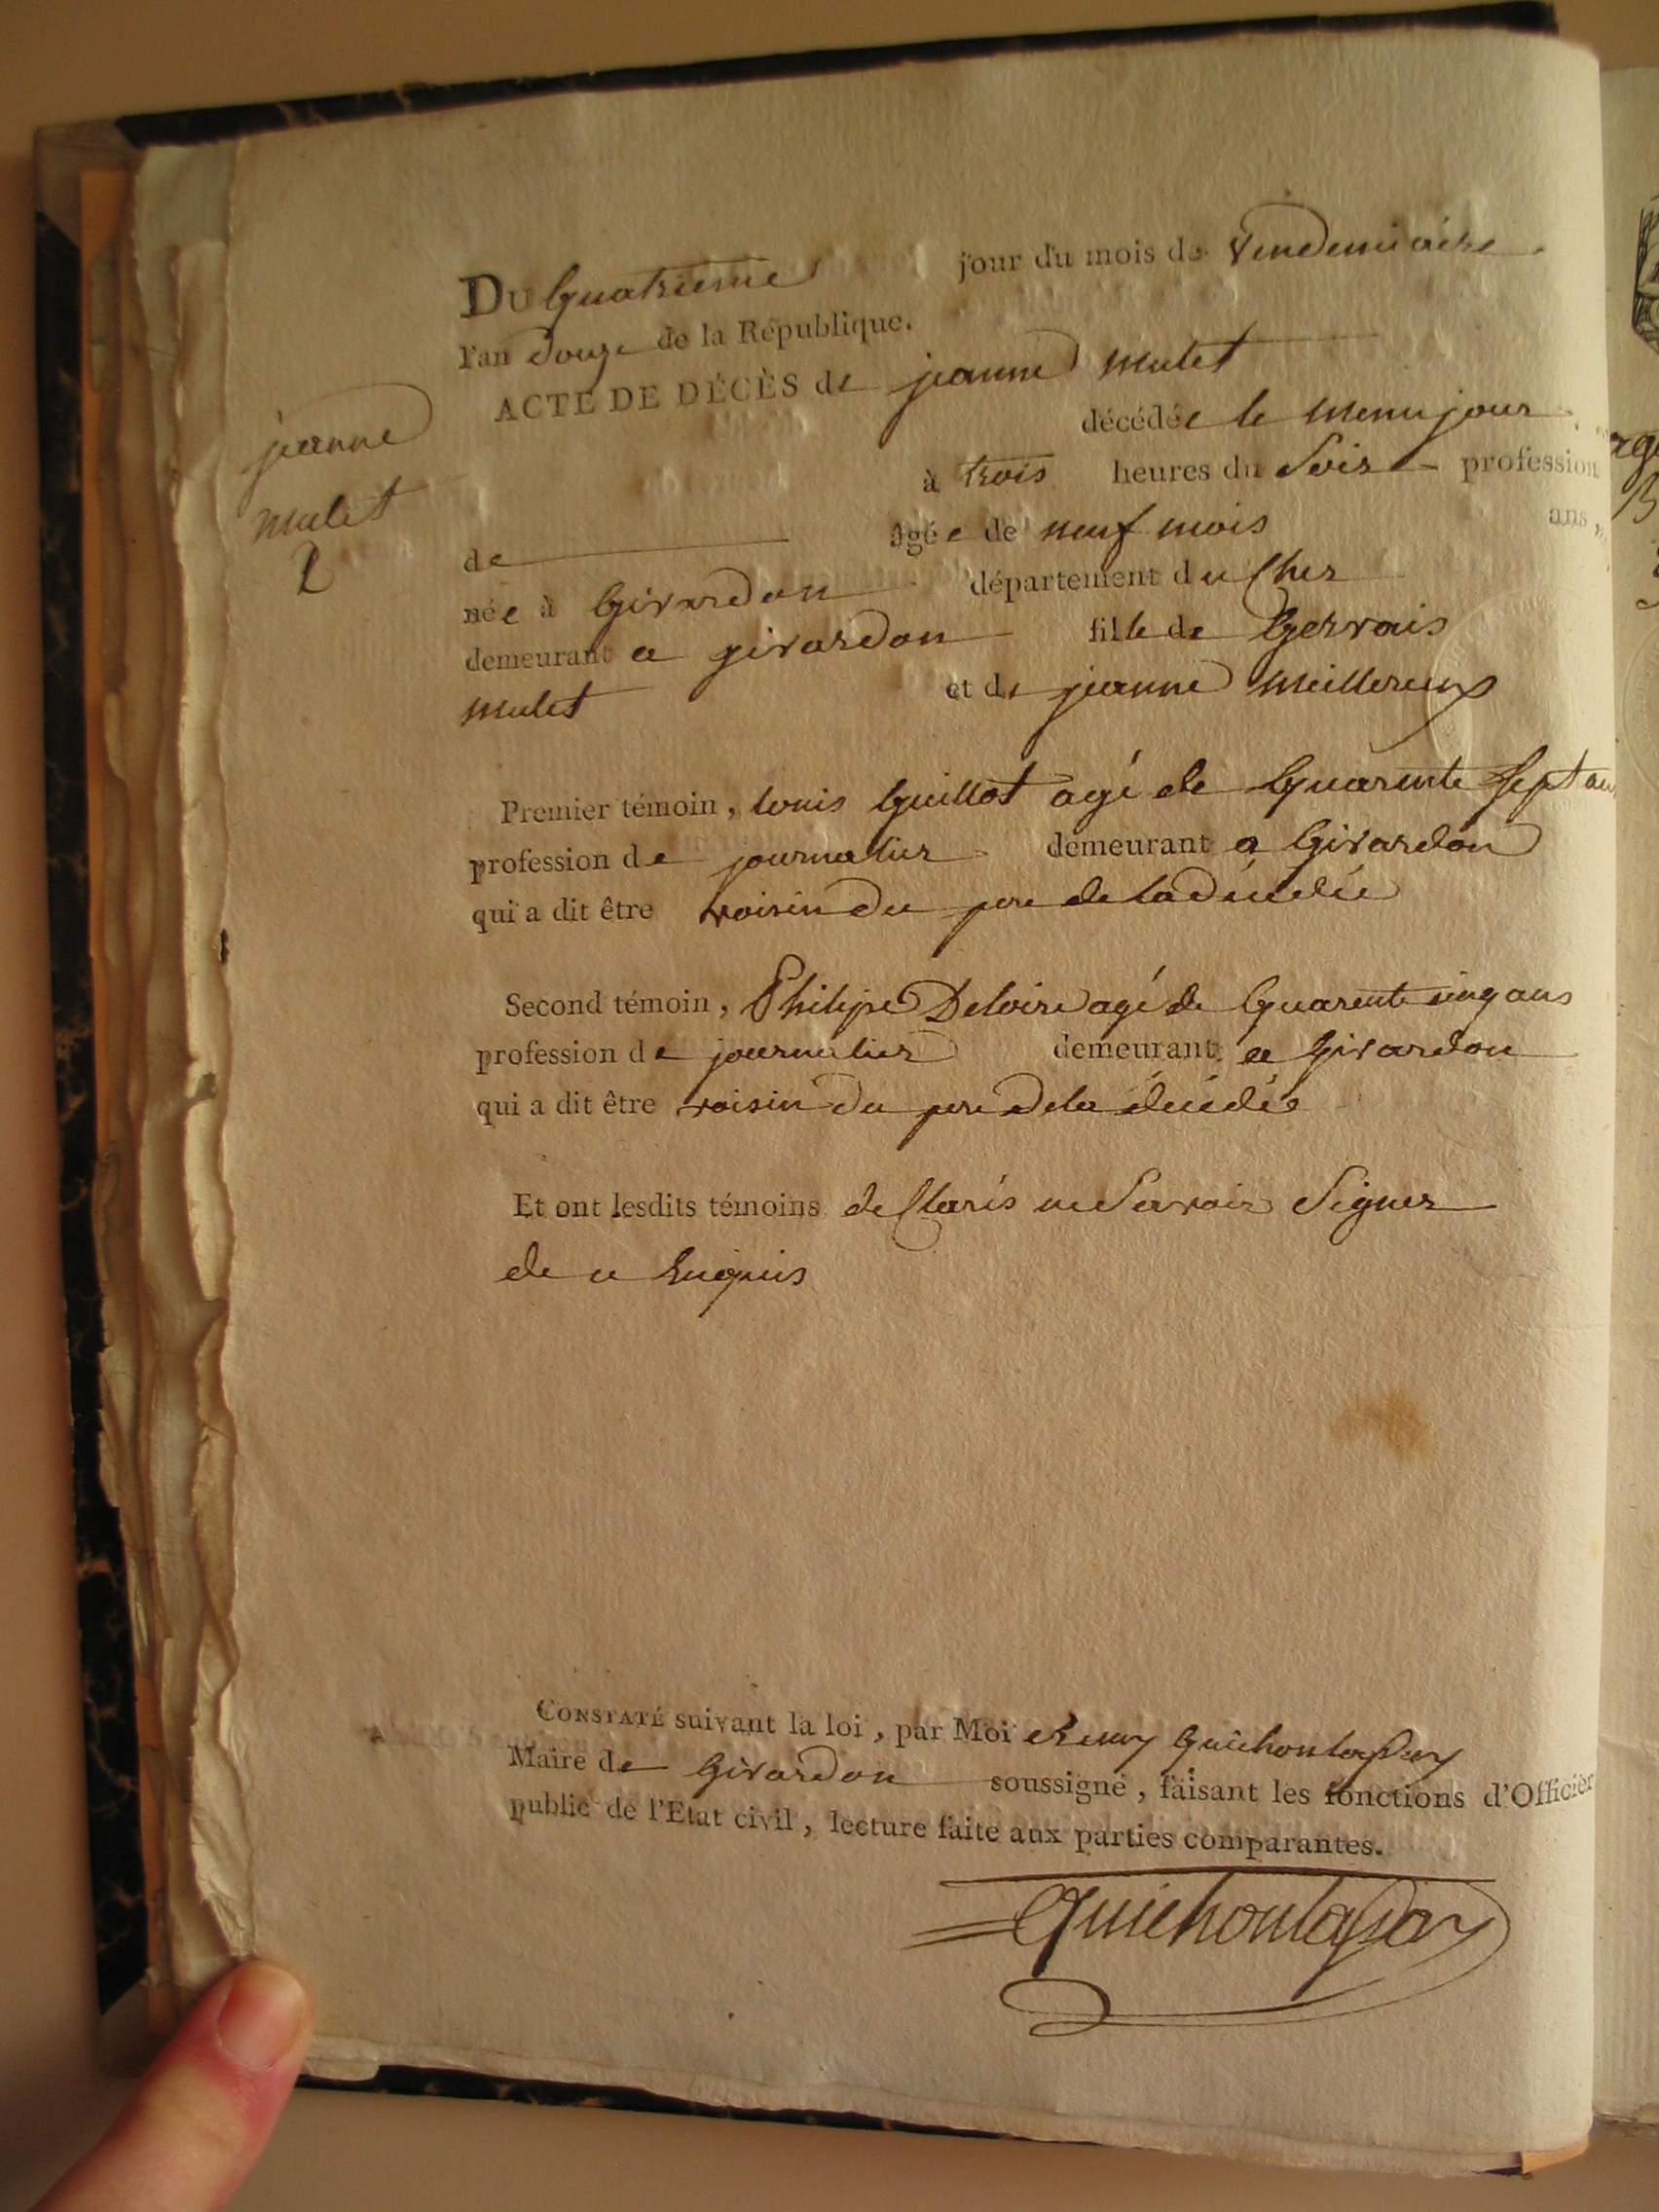 Du Quatrieme jour du mois de Vendemiaire
l'an Douze de la République.
ACTE DE DÉCÈS de jeanne mulet
jeanne
mulet
2
décédée le meme jour
à trois heures du Soir profession
de âgée de neuf mois ans,
née à Girardon département du Cher
demeurant a girardon fille de Gervais
mulet et de jeanne Meillereux
Premier témoin, louis Guillot agé de Quarente Sept ans
profession de journalier demeurant a Girardon
qui a dit être voisin du pere de la décédée
Second témoin, Philipe Deloire agé de Quarente cinq ans
profession de journalier demeurant a Girardon
qui a dit être voisin du pere de la décédée
Et ont lesdits témoins declarés ne Savoir Signer
de ce Enquis
CONSTATÉ suivant la loi, par Moi
Maire de Girardon soussigné, faisant les fonctions d'Officier
public de l'Etat civil, lecture faite aux parties comparantes.